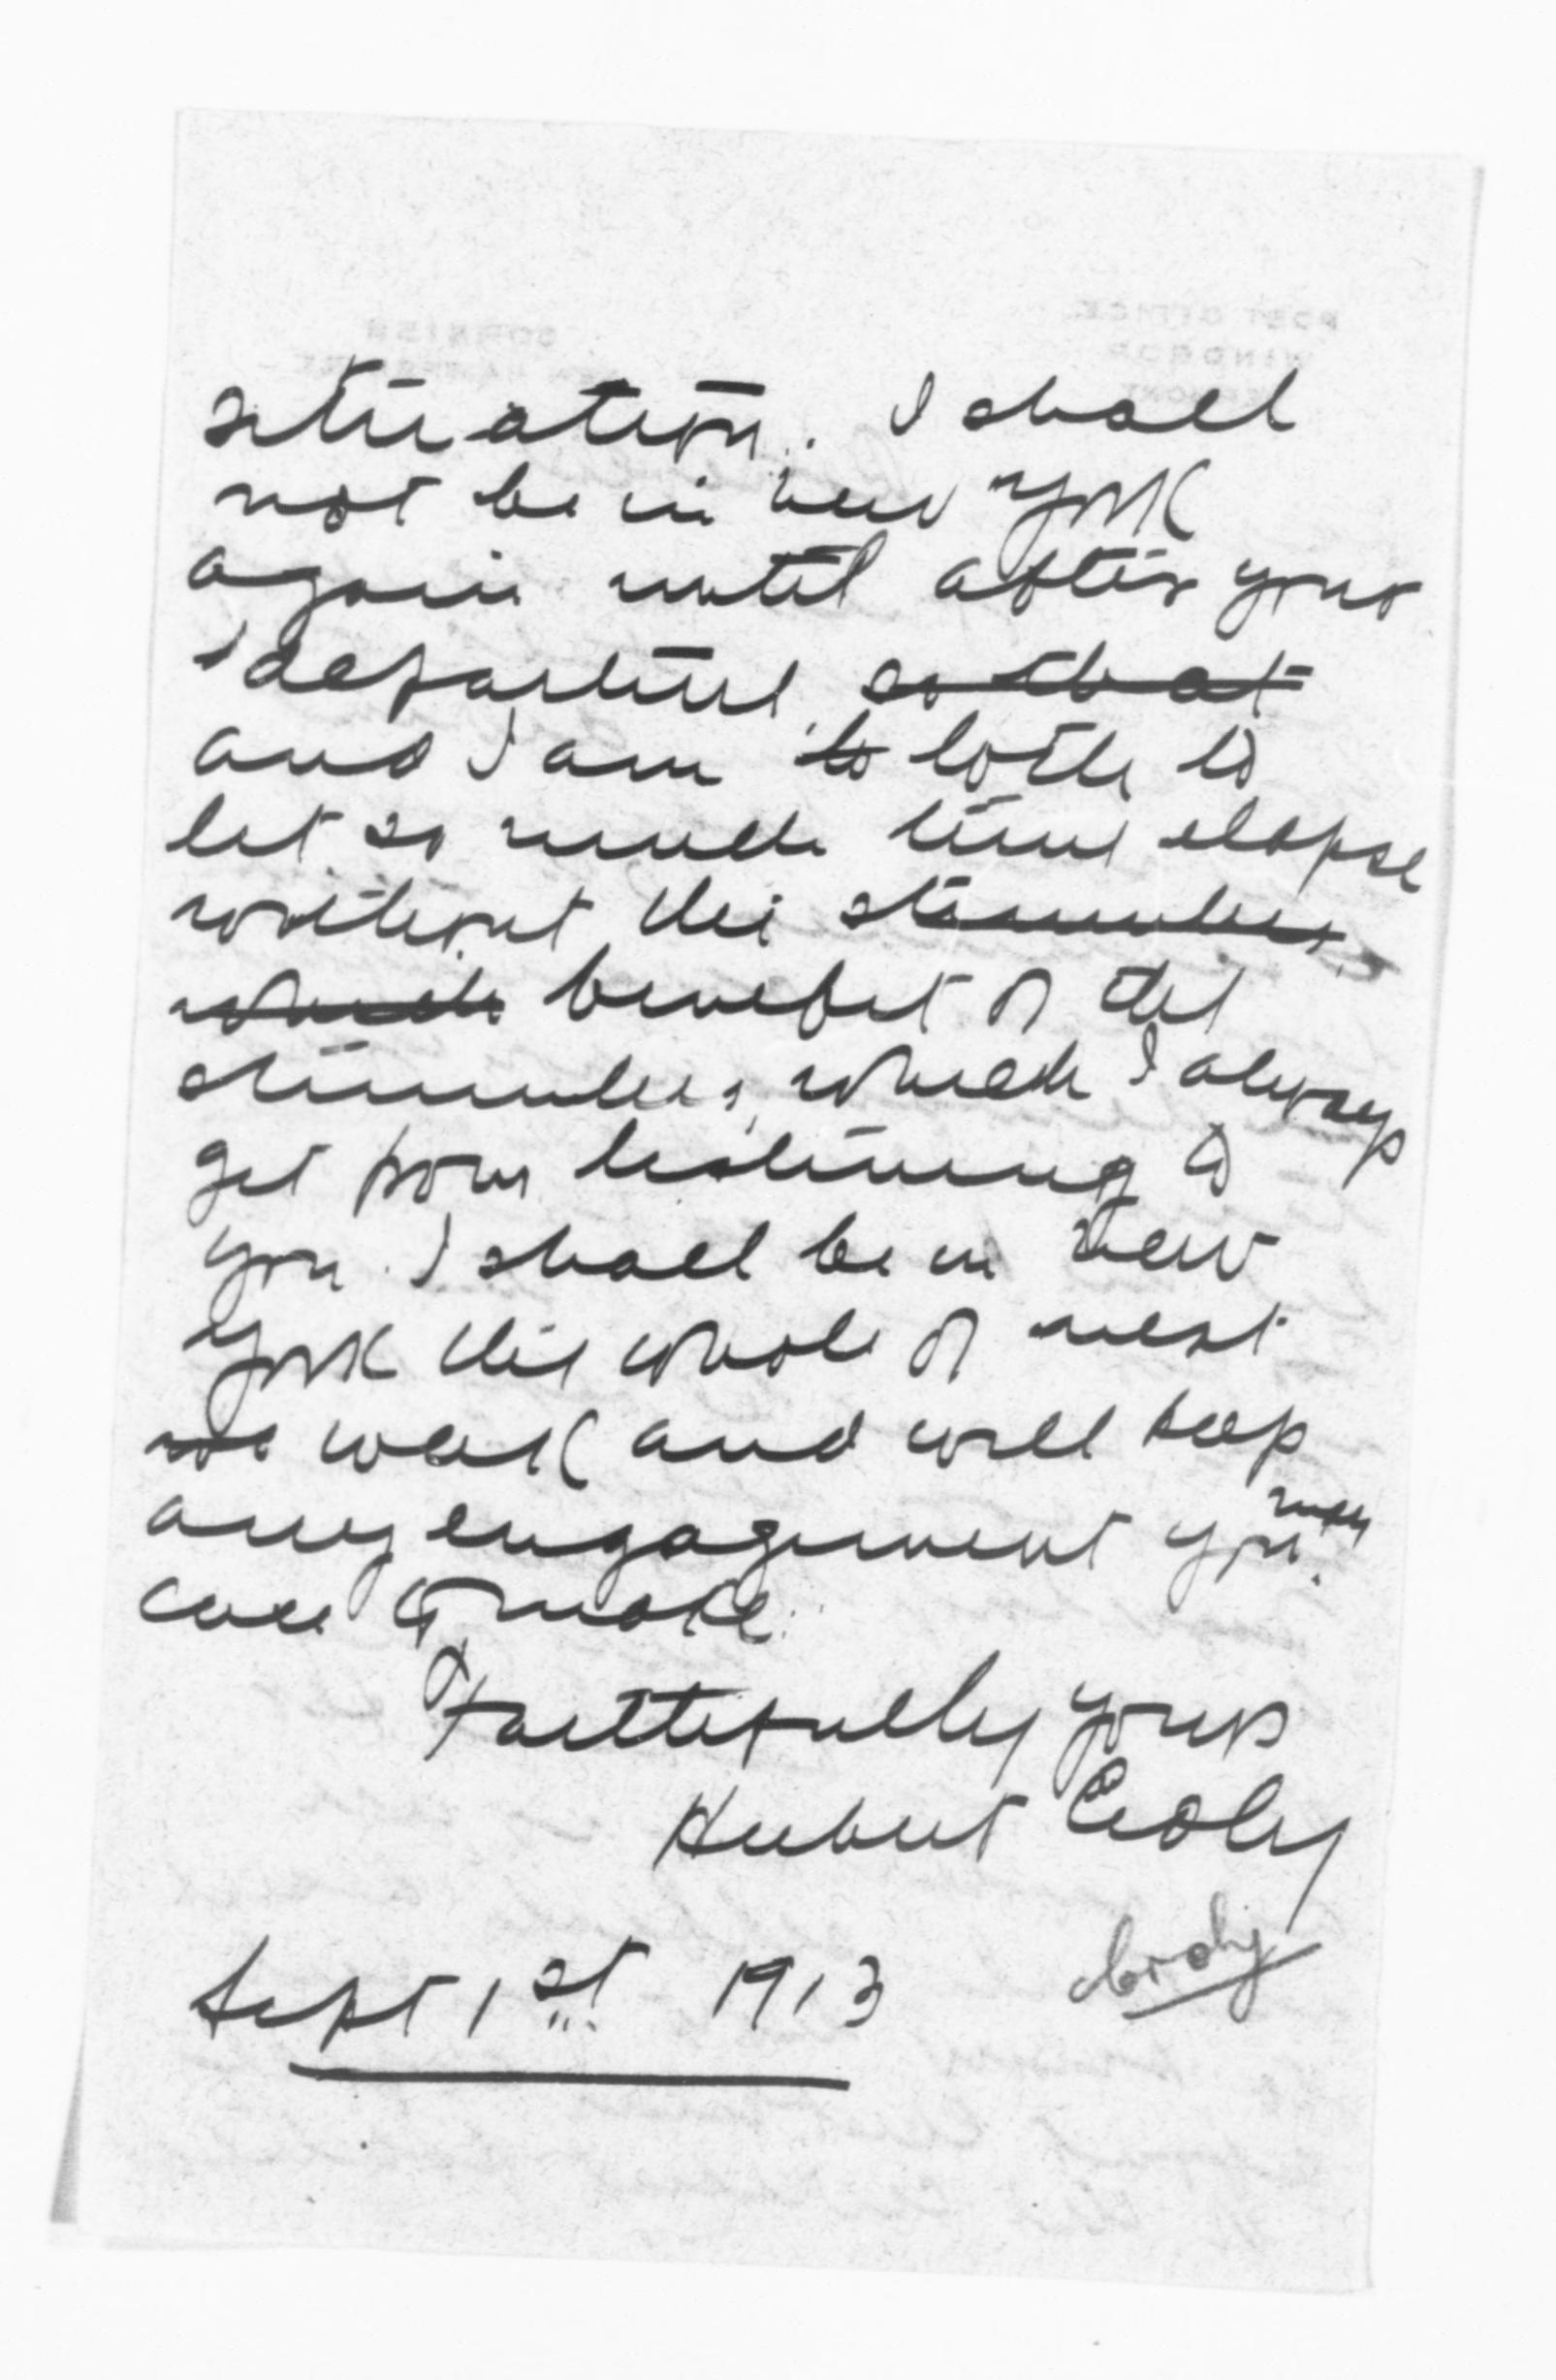 situation. I shall
not be in New York
again until after your
departure, so that
and I am to loth to
let so much time elapse
without the stimulus,
which benefit of the
stimulus, which I always
get from listening to
you. I shall be in New
York the whole of next
we week and will keep
any engagement you may
care to make.
Faithfully yours
Herbert Croly
Croly
Sept 1st 1913